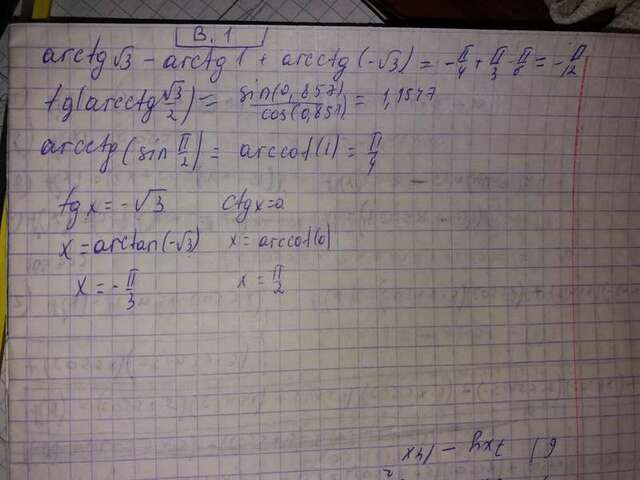 В. 1
arctg √3 - arctg 1 + arcctg (-√3) = -π/4 + π/3 - π/6 = -π/12
tg(arcctg √3/2) = sin(0,857)/cos(0,857) = 1,1547
arcctg (sin π/2) = arccot(1) = π/4
tg x = -√3 ctg x = 0
x = arctan(-√3) x = arccot(0)
x = -π/3 x = π/2